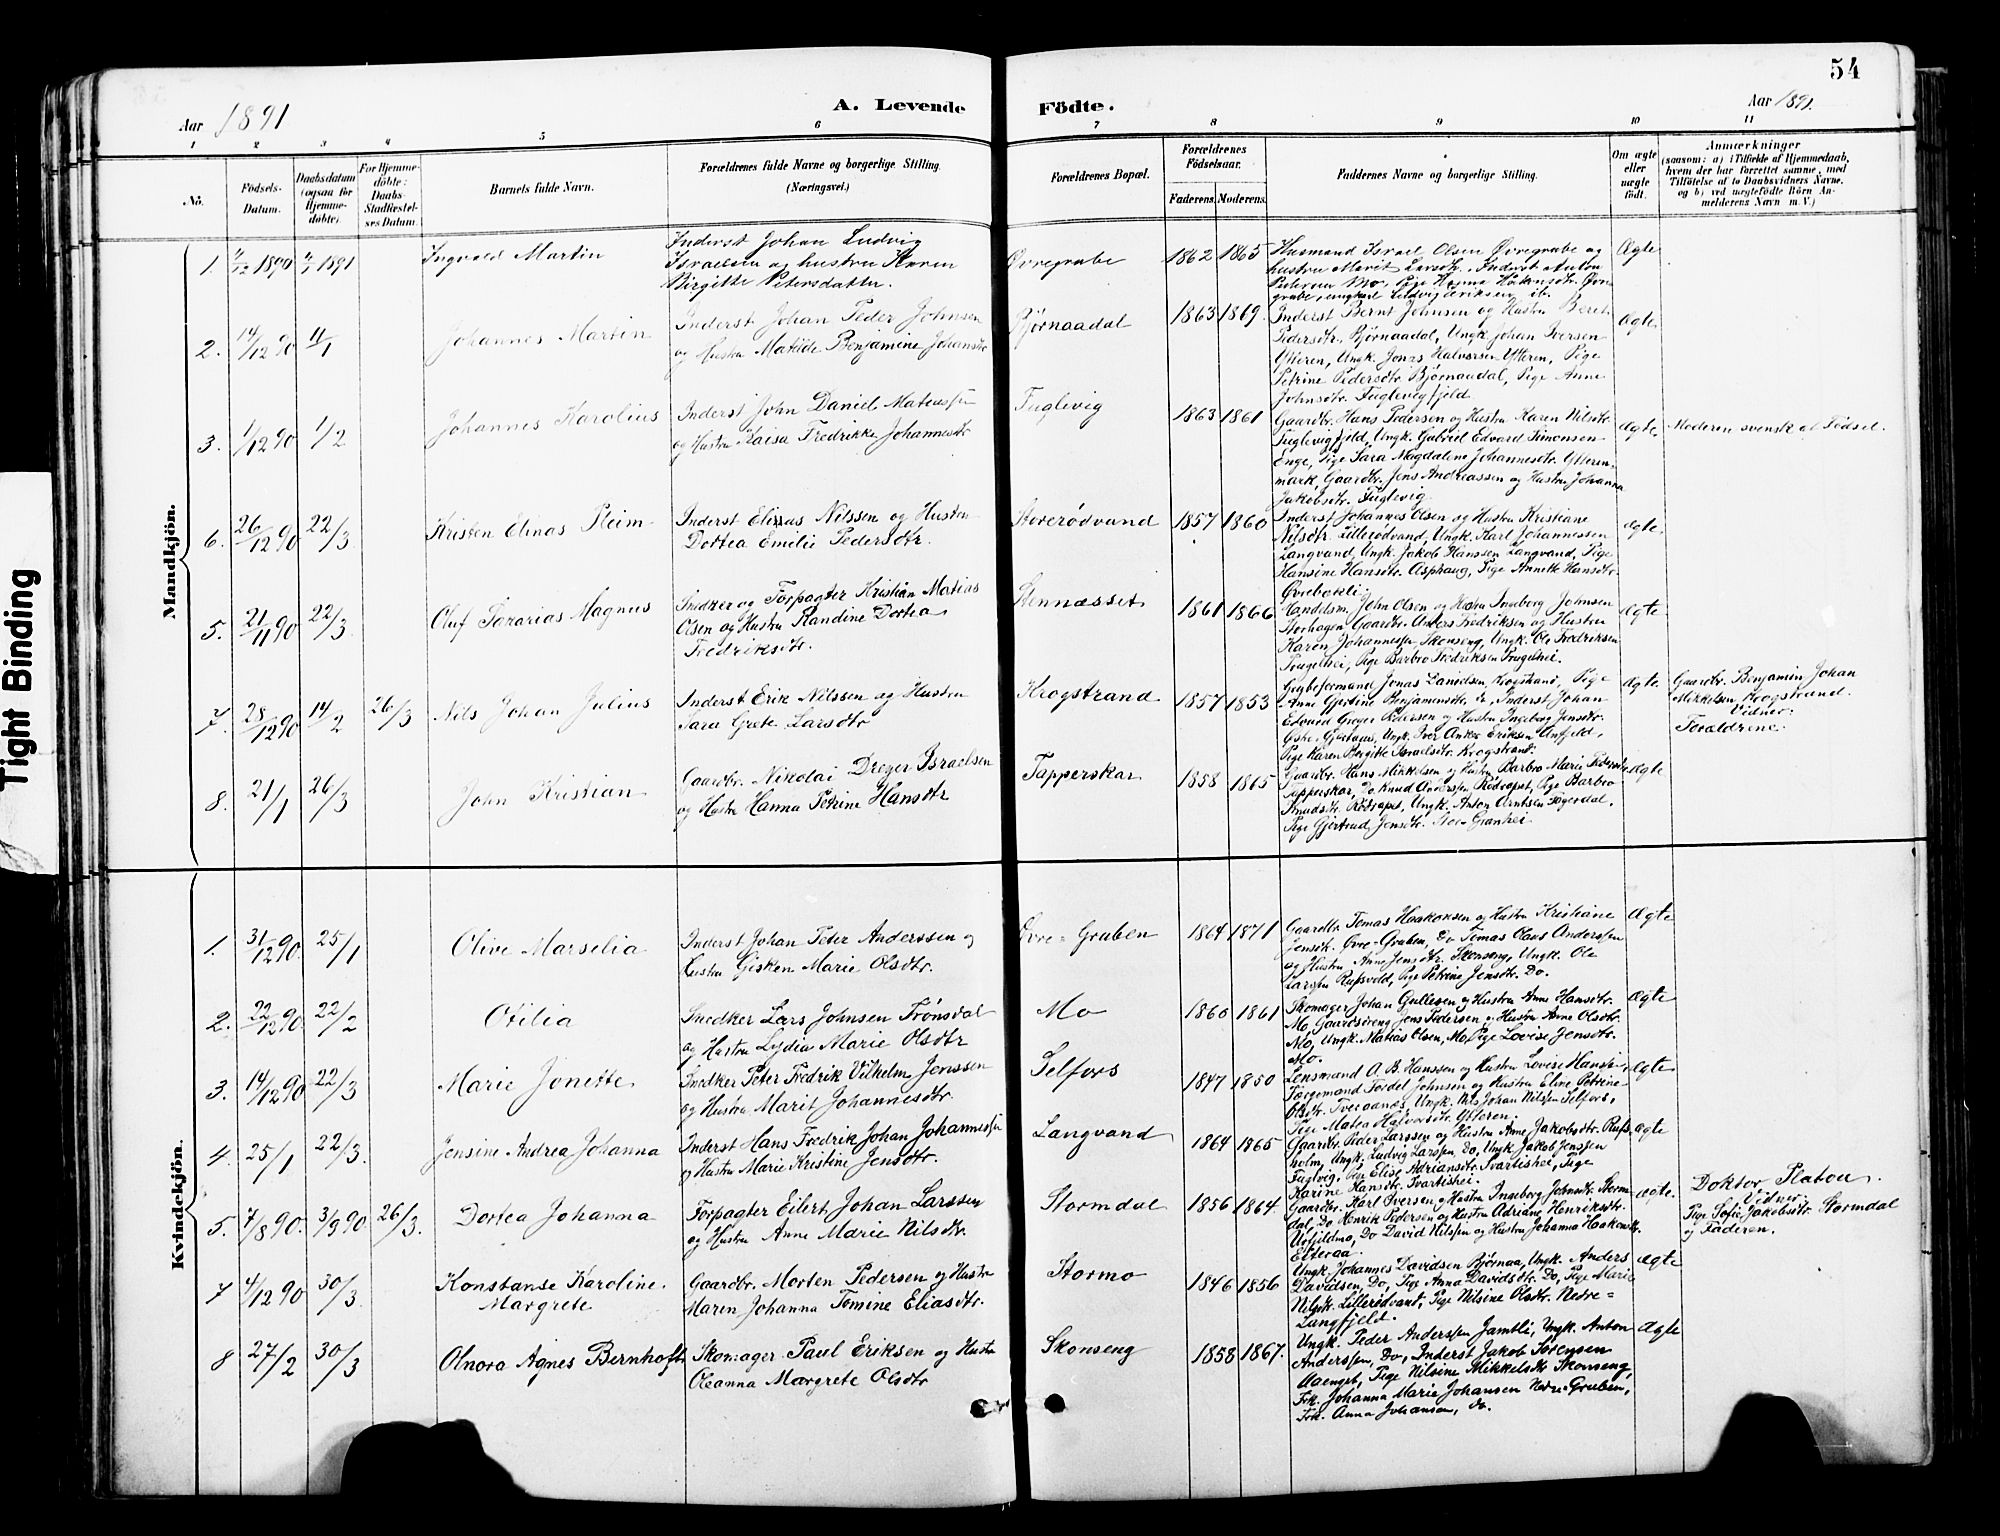 54
A. Levende Födte.
Aar 1891
Aar 1891.
1 2 3 4 5 6 7 8 9 10 11
No.
Födsels-
Datum.
Daabsdatum
(ogsaa för
Hjemme-
döbte).
For Hjemme-
döbte:
Daabs-
Stadfæstel-
ses Datum.
Barnets fulde Navn.
Forældrenes fulde Navne og borgerlige Stilling.
(Næringsvei.)
Forældrenes Bopæl.
Forældrenes
Födselsaar.
Faderens. Moderens.
Faddernes Navne og borgerlige Stilling.
Om ægte
eller
uægte
födt.
Anmærkninger
(saasom: a) i Tilfælde af Hjemmedaab,
hvem der har forrettet samme, med
Tilföielse af to Daabsvidners Navne,
og b) ved uægtefödte Börn An-
melderens Navn m. V.)
Mandkjön.
1. 1890 1891
Ingvald Martin
Inderst Johan Ludvig
Israelsen og hustru Karen
Birgitte Petersdatter.
Øvregrube
1862 1865
Husmand Israel Olsen Øvregrube og
hustru Marit Larsdtr. Inderst Anton
Pedersen Mo, Pige Hanna Håkonsdtr. Øvre
grube, ungkarl Ludvig Eriksen ib.
Ægte
2. 14/12 90 11/1
Johannes Martin
Inderst Johan Peder Johnsen
og Hustru Matilde Benjamine Johansdtr
Bjørnaadal
1863 1869.
Inderst Bernt Johnsen og Hustru Beret
Pedersdtr. Bjørnaadal, Ungk. Johan Iversen
Ytteren, Ungk. Jonas Halvorsen Ytteren, Pige
Petrine Pedersdtr. Bjørnaadal, Pige Anne
Johnsdtr. Fuglevigfjeld.
Ægte
3. 1/12 90 1/2
Johannes Karolius
Inderst John Daniel Mateussen
og Hustru Kaisa Fredrikke Johannesdtr
Fuglevig
1863 1861
Gaardbr. Hans Pedersen og Hustru Karen Nilsdtr.
Fuglevigfjeld, Ungk. Gabriel Edvard Simonsen
Enge, Pige Sara Magdaline Johannesdtr. Ytteren-
mark, Gaardbr. Jens Andreassen og Hustru Johanna
Jakobsdtr. Fuglevig
ægte.
Moderen svensk af Fødsel.
6. 26/12 90 22/3
Kristen Elinas Pleim
Inderst Elisæus Nilssen og Hustru
Dortea Emilie Pedersdtr.
Storerødvand
1857 1860
Inderst Johannes Olsen og Hustru Kristiane
Nilsdtr. Lillerødvand, Ungk. Karl Johannessen
Langvand, Ungk. Jakob Hanssen Langvand, Pige
Hansine Hansdtr. Asphaug, Pige Annette Hansdtr.
ægte.
5. 21/11 90 22/3
Oluf Sakarias Magnus
Snedker og Forpagter Kristian Matias
Olsen og Hustru Randine Dortea
Fredriksdtr.
Stennæsset
1861 1866
Handelsm. John Olsen og Hustru Ingeborg Johnsen
Storhagen, Gaardbr. Anders Fredriksen og Hustru
Karen Johannessen, Skonseng, Ungk. Ole Fredriksen
Trugelhei, Pige Barbro Fredriksen Trugelhei.
ægte
7. 28/12 90 14/2 26/3
Nils Johan Julius
Inderst Erik Nilssen og Hustru
Sara Grete Larsdtr
Krogstrand
1857 1853
Jonas Danielsen Krogstrand, Pige
Anne Gjertine Benjaminsdtr. do, Inderst Johan
Edvard Greger Pedersen og Hustru Ingeborg Jensdtr.
Ungk. Iver Anker Eriksen Umfjeld,
Pige Karen Birgitte Israelsdtr. Krogstrand.
Ægte.
Gaardbr. Benjamin Johan
Mikkelsen, Krogstrand.
Vidner:
Forældrene.
8. 21/1 26/3
John Kristian
Gaardbr. Nikolai Dreyer Israelsen
og Hustru Hanna Petrine Hansdtr
Tapperskar
1858 1865
Gaardbr. Hans Mikkelsen og Hustru Barbro Marie Pedersdtr.
Tapperskar, Do Knud Anderssen Rødvaset, Pige Barbro
Knudsdtr. Rødvaset, Ungk. Anton Arntsen Fagerdal,
Pige Gjertrud Jensdtr. Granhei
ægte
Kvindekjön.
1. 31/12 90. 25/1
Olive Marselia
Inderst Johan Peter Anderssen og
Hustru Gisken Marie Olsdtr.
Øvre-Gruben
1864 1871
Gaardbr. Tomas Haakonsen og Hustru Kristiane
Jensdtr. Øvre-Gruben, Do Tomas Olaus Anderssen
og Hustru Anne Jensdtr. Skonseng, Ungk. Ole
Larssen Rufsvold, Pige Petrine Jensdtr. Do.
ægte
2. 22/12 90. 22/2
Otilia
Snedker Lars Johnsen Trønsdal
og Hustru Lydia Marie Olsdtr
Mo
1860 1861
Skomager Johan Gullesen og Hustru Anne Hansdtr.
Mo, Gaardsdreng Jens Pedersen og Hustru Anne Olsdtr.
Mo, Ungk. Matias Olsen, Mo, Pige Lovise Jensdtr.
Mo.
ægte
3. 14/12 90 22/3
Marie Jonette
Snedker Peter Fredrik Vilhelm Jenssen
og Hustru Marit Johannesdtr.
Selfors
1847 1850
Lensmand A. B. Hanssen og Hustru Lovise Hanssen,
Færgemand Tordel Johnsen og Hustru Eline Petrine
Olsdtr. Tveraanæs, Ungk. Nils Johan Nilssen Selfors,
Pige Matea Halvorsdtr. Ytteren.
ægte
4. 25/1 22/3.
Jensine Andrea Johanna
Inderst Hans Fredrik Johan Johannessen
og Hustru Marie Kristine Jensdtr.
Langvand
1864 1865
Gaardbr. Peder Larssen og Hustru Anne Jakobsdtr. Rufs-
holm, Ungk. Ludvig Larssen, Do, Ungk. Jakob Jenssen
Fuglvig, Pige Elise Adriansdtr. Svartishei, Pige
Karine Hansdtr. Svartishei.
ægte
5. 7/8 90. 3/9 90 26/3.
Dortea Johanna
Forpagter Eilert Johan Larssen
og Hustru Anne Marie Nilsdtr.
Stormdal
1856 1864
Gaardbr. Karl Iversen og Hustru Ingeborg Johnsdtr. Storm-
dal, Do Henrik Pedersen og Hustru Adriane Henriksdtr.
Urfjeldmo, Do David Nilssen og Hustru Johanna Haakonsdtr.
Eiteraa.
ægte.
Doktor Platou.
Vidner:
Pige Sofie Jakobsdtr. Stormdal
og Faderen.
7 4/12 90 30/3.
Konstanse Karoline
Margrete
Gaardbr. Morten Pedersen og Hustru
Maren Johanna Tomine Eliasdtr.
Stormo
1846 1856
Ungk. Johannes Davidsen Bjørnaa, Ungk. Anders
Davidsen, Do, Pige Anna Davidsdtr. Do, Pige Marie
Nilsdtr. Lillerødvand, Pige Nilsine Olsdtr. Nedre-
Langfjeld.
ægte
8 27/2 30/3
Olnora Agnes Bernhoft
Skomager Paul Eriksen og Hustru
Oleanna Margrete Olsdtr
Skonseng
1858 1867.
Ungk. Peder Anderssen Jamtli, Ungk. Anton
Anderssen, Do, Inderst Jakob Sørensen
Aaenget, Pige Nilsine Mikkelsdtr. Skonseng,
Frk. Johanna Marie Johansen Nedre-Gruben,
Frk. Anna Johansen, do.
ægte
Tight Binding